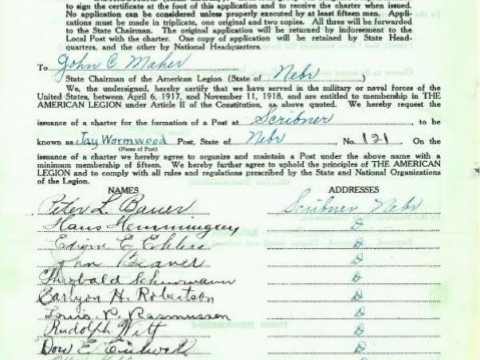 to sign the certificate at the foot of this application and to receive the charter when issued.
No application can be considered unless properly executed by at least fifteen men. Appli-
cations must be made in triplicate, one original and two copies. All three will be forwarded
to the State Chairman. The original application will be returned by indorsement to the
Local Post with the charter. One copy of application will be retained by State Head-
quarters, and the other by National Headquarters.
To John C Maher
State Chairman of the American Legion (State of Nebr )
We, the undersigned, hereby certify that we have served in the military or naval forces of the
United States, between April 6, 1917, and November 11, 1918, and are entitled to membership in THE
AMERICAN LEGION under Article II of the Constitution, as above quoted. We hereby request
issuance of a charter for the formation of a Post at Scribner, to be
known as Jay Wormwood Post, State of Nebr No. 121. On the
(Name of Post)
issuance of a charter we hereby agree to organize and maintain a Post under the above name with a
minimum membership of fifteen. We hereby further agree to uphold the principles of THE AMERICAN
LEGION and to comply with all rules and regulations prescribed by the State and National Organizations
of the Legion.
NAMES ADDRESSES
Peter L. Bauer Scribner Nebr
Hans Hemmingsen
Edwin E Ehlers
John Beaver
Theobald Schurmann
Earlyon H. Robertson
Louis P. Rasmussen
Rudolph Witt
Dow E